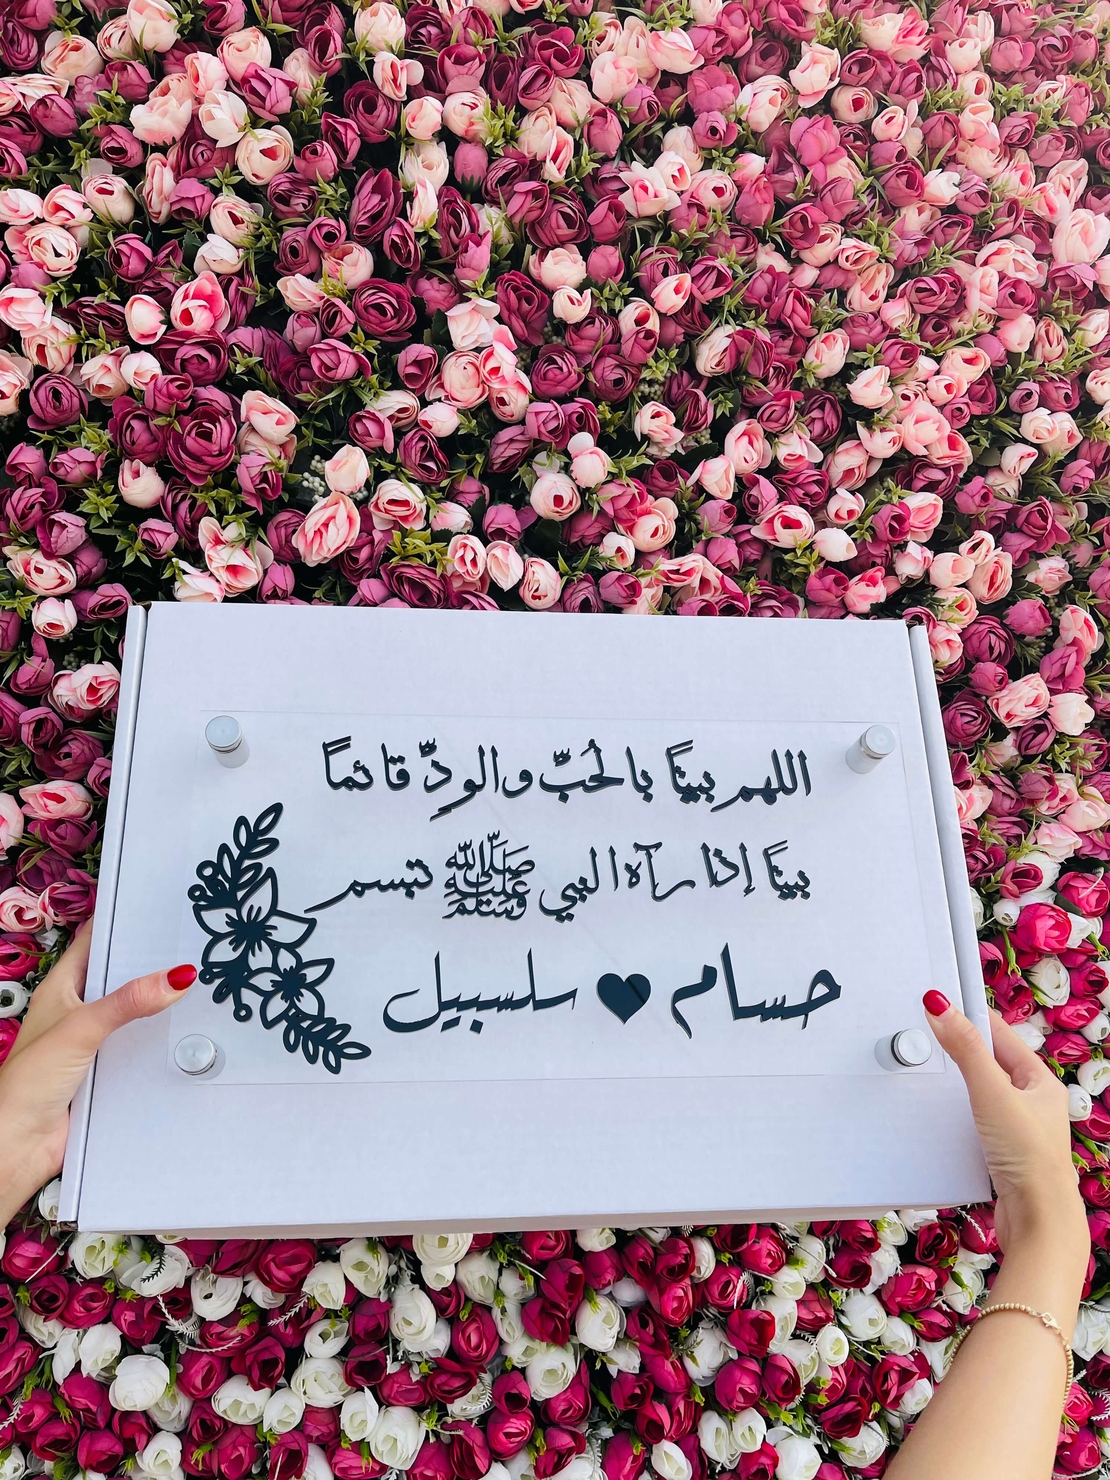 اللهم بيتًا بالحُبّ والودِّ قائمًا
بيتًا إذا رآه النبي ﷺ تبسم
حسام سلسبيل